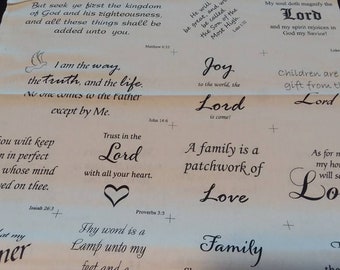 But seek ye first the kingdom
of God and his righteousness,
and all these things shall be
added unto you.
Matthew 6:33
He will be
great, and will
be called
the Son of
the Most
High
Luke 1:32
My soul doth magnify the
Lord
and my spirit rejoices in
God my Saviour!
I am the way,
the truth, and the life.
No one comes to the Father
except by Me.
John 14:6
Joy
to the world, the
Lord
is come!
Children are
gift from
Lord
You wilt keep
in perfect
whose mind
stayed on thee.
Isaiah 26:3
Trust in the
Lord
with all your heart.
Proverbs 3:5
A family is a
patchwork of
Love
As for m
my ho
will se
Lo
at my
ner
Thy word is a
Lamp unto my
feet and a
Family